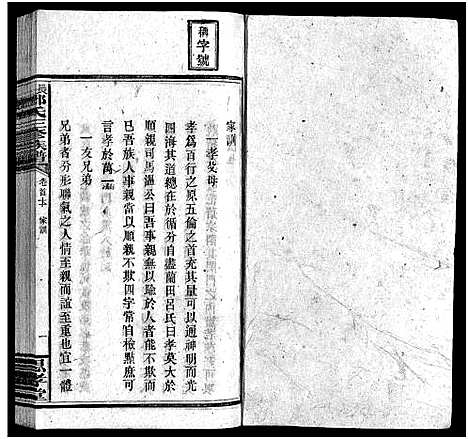 稱字號
家訓
一孝父母
孝爲百行之原五倫之首充其量可以通神明而光
四海其道總在於循分自盡藍田呂氏曰孝莫大於
順親司馬溫公曰吾事親無以踰於人者能不欺而
已吾族人事親當以順親不欺四字常自檢點庶可
言孝於萬一
一友兄弟
兄弟者分形聯氣之人情至親而誼至重也宜一體
氏三修族譜
卷首下 家訓
一